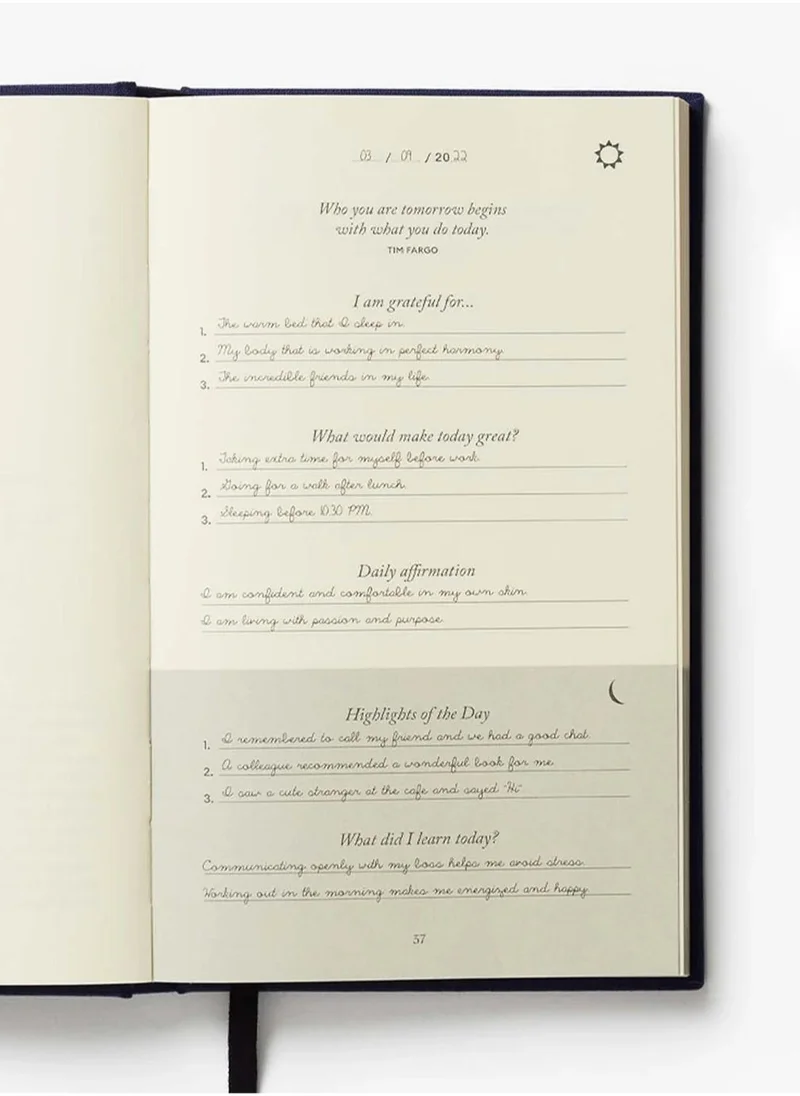 03 / 09 / 2022
Who you are tomorrow begins
with what you do today.
TIM FARGO
I am grateful for...
1. The warm bed that I sleep in.
2. My body that is working in perfect harmony.
3. The incredible friends in my life.
What would make today great?
1. Taking extra time for myself before work.
2. Going for a walk after lunch.
3. Sleeping before 10:30 PM.
Daily affirmation
I am confident and comfortable in my own skin.
I am living with passion and purpose.
Highlights of the Day
1. I remembered to call my friend and we had a good chat.
2. A colleague recommended a wonderful book for me.
3. I saw a cute stranger at the cafe and sayed "Hi"
What did I learn today?
Communicating openly with my boss helps me avoid stress.
Working out in the morning makes me energized and happy.
57